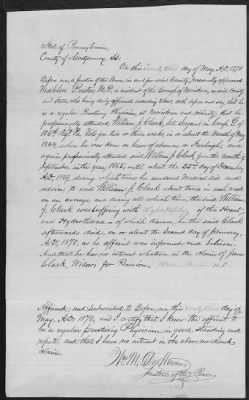 State of Pennsylvania
County of Montgomery SS.
On this day of May, A.D. 1870.
Before me a Justice of the Peace, in and for said County, personally appeared
Mahlon Preston M.D. a resident of the Borough of Norristown, in said County
and State who being duly affirmed according to law, doth depose and say, that he
is a regular Practicing Physician, at Norristown and vicinity; that he
professionally attended William J. Clark, late Sergeant in Comp. D. of
106th Regt. Pa. Vols for two or three weeks, in or about the month of May
1864, when he was Home on leave of absence or Furlough; and
again professionally attended William J. Clark from the month of
September in the year 1865, until about the 25th day of November
A.D. 1869, during which times he rendered medical aid and
advice, to said William J. Clark about twice in each week
on an average and during all which times, the said William
J. Clark was suffering with of the Heart
and Hydrothorax of which disease, he the said Clark,
afterwards died, on or about the second day of January,
A.D. 1870, as he affiant was informed and believes.
And that he has no interest whatever in the Claim of Jane
Clark, Widow for Pension.
Affirmed and subscribed to Before me this day of
May, A.D. 1870, and I certify that I know the affiant to
be a regular practicing Physician, in good standing and
repute and that I have no interest in the above mentioned
Claim.
Wm. M.
Justice of the Peace